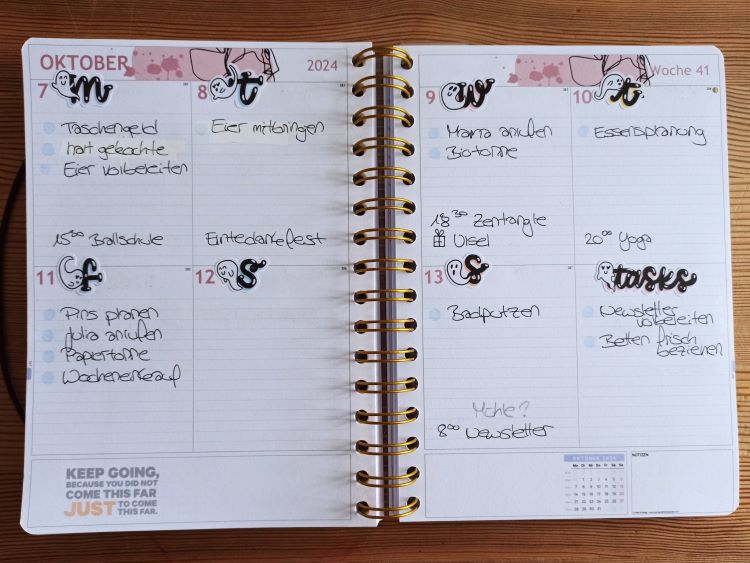 OKTOBER
2024
7
m
Taschengeld
hart gekochte
Eier vorbereiten
15³⁰ Ballschule
8
t
Eier mitbringen
Erntedankfest
11
f
Pins planen
Julia anrufen
Papiertonne
Wocheneinkauf
12
s
KEEP GOING,
BECAUSE YOU DID NOT
COME THIS FAR
JUST TO COME
THIS FAR.
Woche 41
9
w
Mama anrufen
Biotonne
18³⁰ Zentangle
10
t
Essensplanung
20⁰⁰ Yoga
13
s
Badputzen
8⁰⁰ Newsletter
tasks
Newsletter
vorbereiten
Betten frisch
beziehen
OKTOBER 2024
Mo Di Mi Do Fr Sa So
1 2 3 4 5 6
7 8 9 10 11 12 13
14 15 16 17 18 19 20
21 22 23 24 25 26 27
28 29 30 31
NOTIZEN